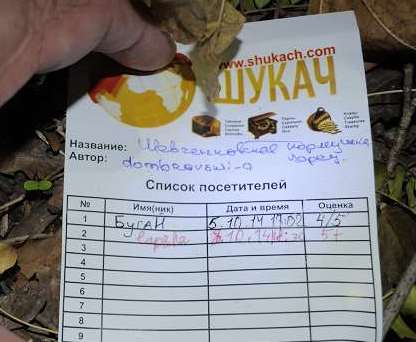 www.shukach.com
ШУКАЧ
Название: Шевченковская кормушка,
Автор: dombrovswi-a
Список посетителей
№ Имя(ник) Дата и время Оценка
1 Буган 5.10.14 17:02 4/5
2 10.14 5+
3
4
5
6
7
8
9